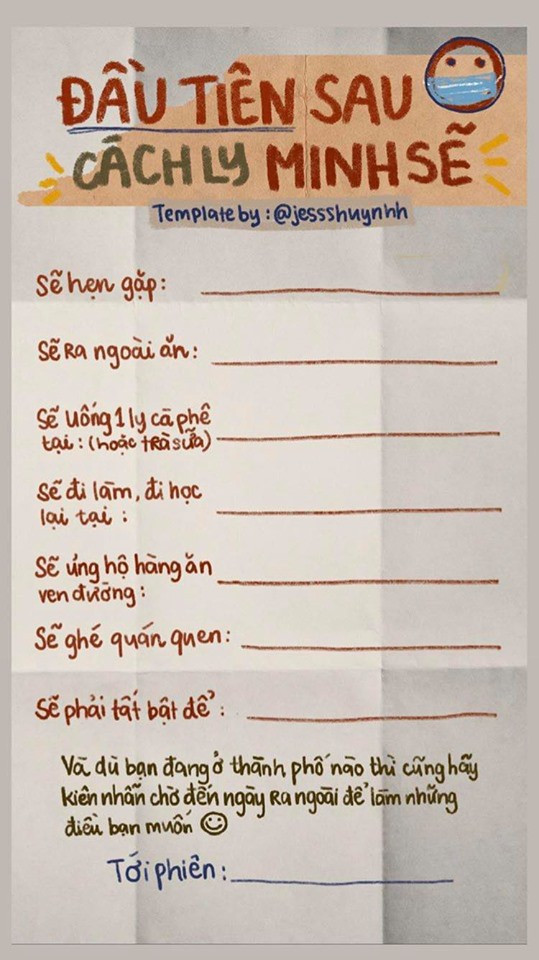 ĐẦU TIÊN SAU
CÁCH LY MÌNH SẼ
Template by : @jessshuynhh
Sẽ hẹn gặp:
Sẽ Ra ngoài ăn:
Sẽ uống 1 ly cà phê
tại : (hoặc trà sữa)
Sẽ đi làm, đi học
lại tại :
Sẽ ủng hộ hàng ăn
ven đường:
Sẽ ghé quán quen:
Sẽ phải tất bật để :
Và dù bạn đang ở thành phố nào thì cũng hãy
kiên nhẫn chờ đến ngày Ra ngoài để làm những
điều bạn muốn
Tới phiên: